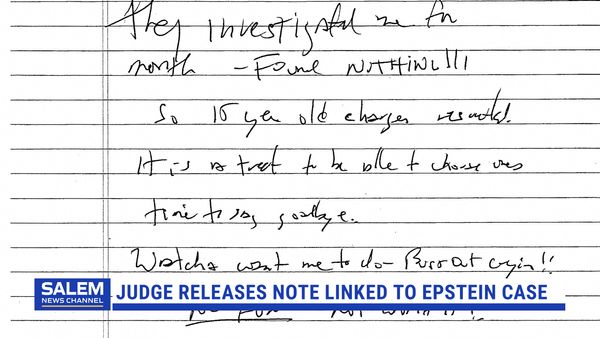 They investigated me for
month – Found NOTHING!!!
So 15 year old charges resulted.
It is a treat to be able to choose ones
time to say goodbye.
Watcha want me to do – Burst out cryin!!
SALEM
NEWS CHANNEL
JUDGE RELEASES NOTE LINKED TO EPSTEIN CASE